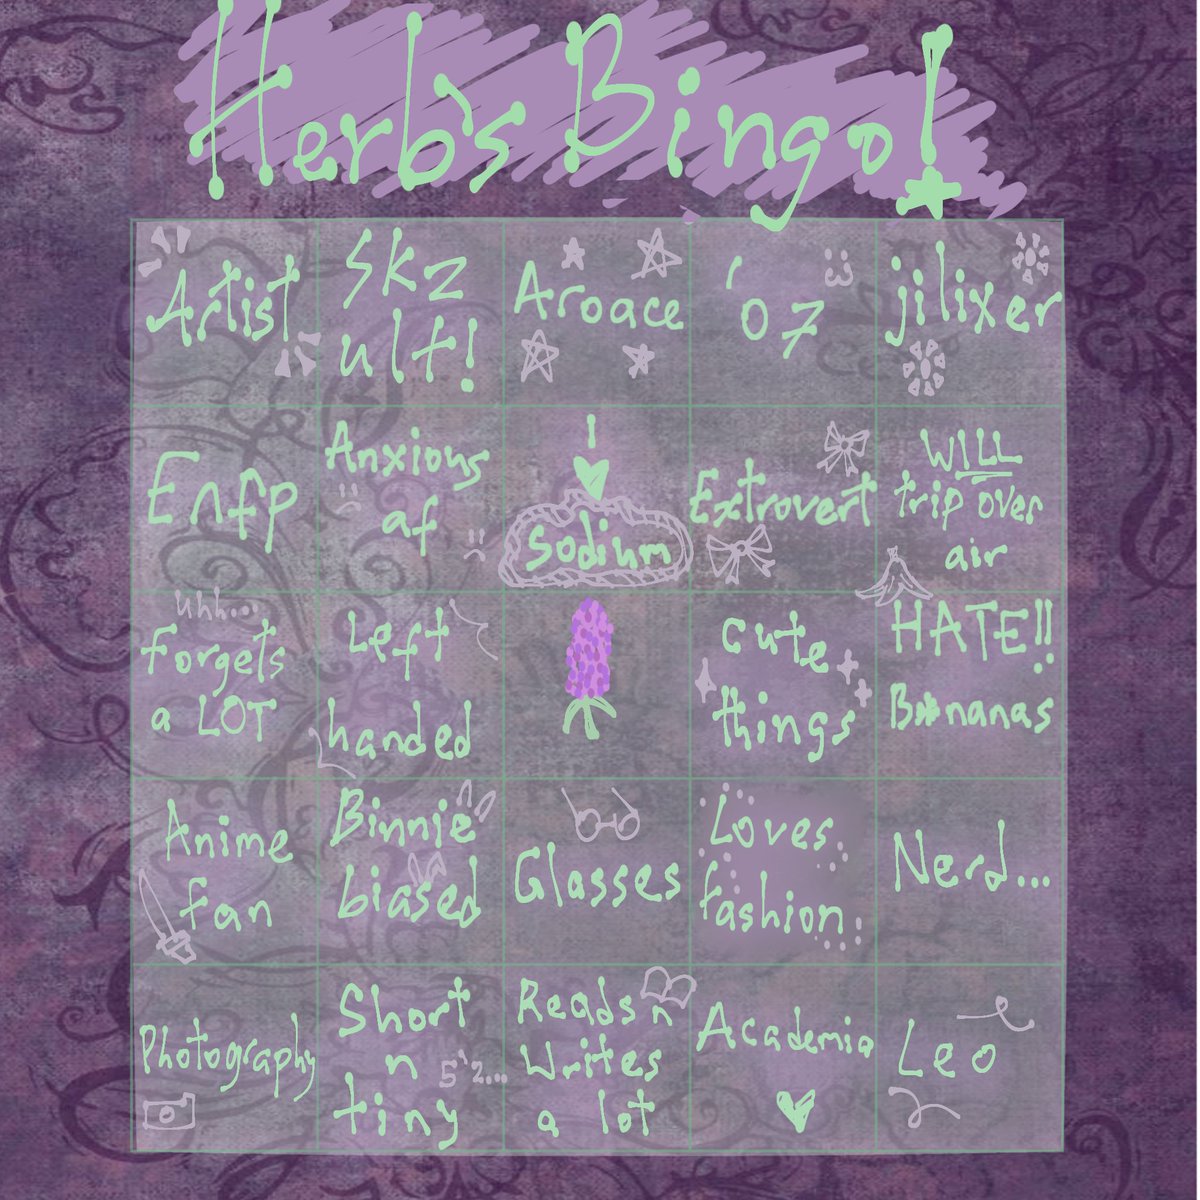 Herb's Bingo!
Artist
Skz
ult!
Aroace
'07
jilixer
Enfp
Anxious
af
I
sodium
Extrovert
WILL
trip over
air
uhh...
Forgets
a LOT
Left
handed
cute
things
HATE!!
Bananas
Anime
fan
Binnie
biased
Glasses
Loves
fashion
Nerd...
Photography
Short
n
5'2...
tiny
Reads n
Writes
a lot
Academia
Leo